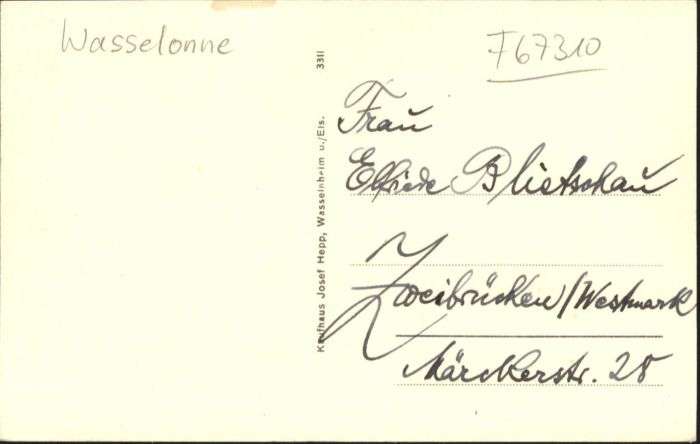 Wasselonne
F67310
3311
Kaufhaus Josef Hepp, Wasselnheim u./Els.
Frau
Elfriede Blietschau
Zweibrücken/Westmark
Märckerstr. 28